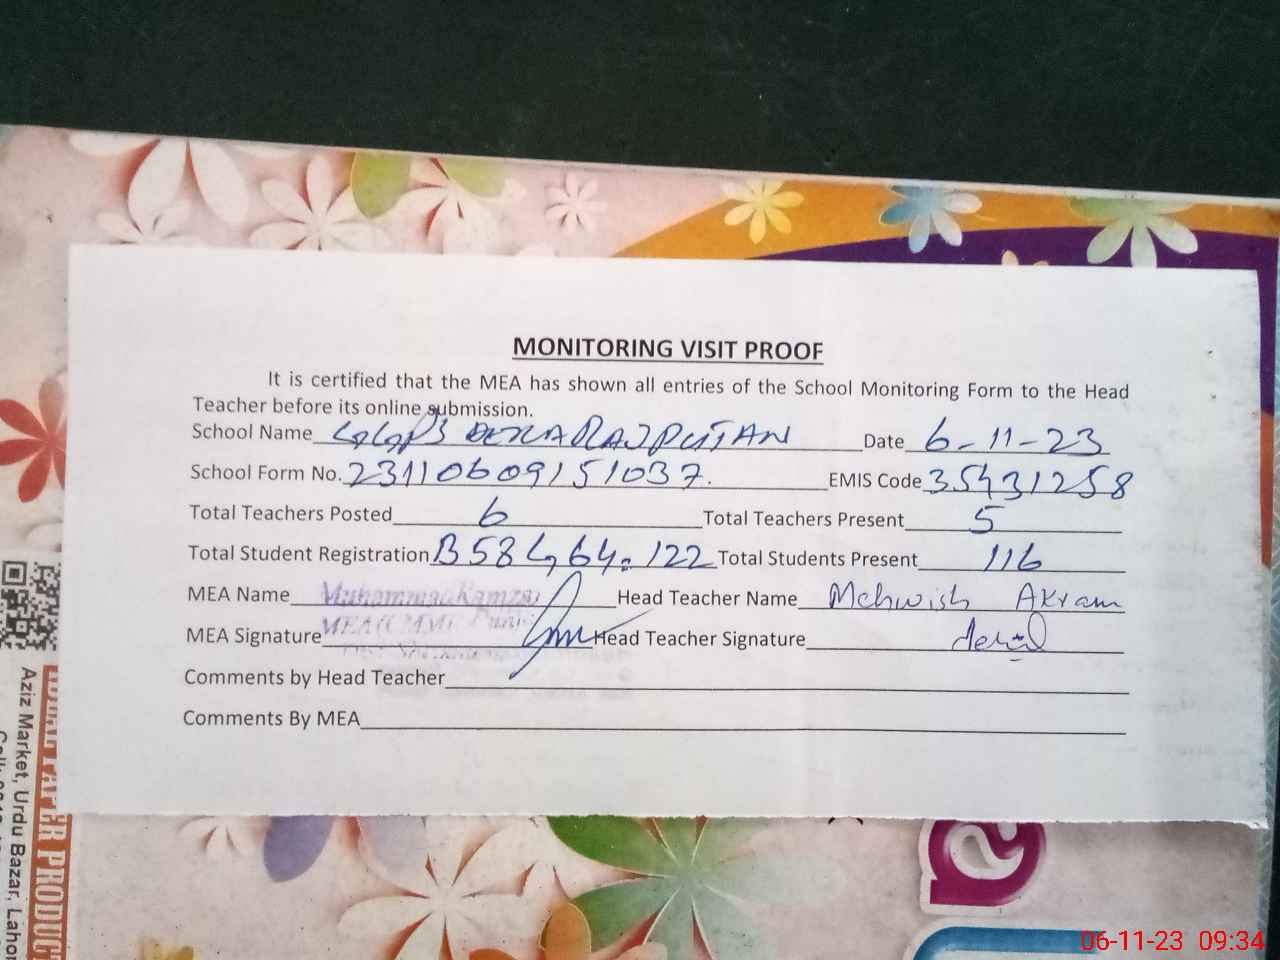 MONITORING VISIT PROOF
It is certified that the MEA has shown all entries of the School Monitoring Form to the Head
Teacher before its online submission.
School Name GGPS DERA RAJPUTAN Date 6-11-23
School Form No. 23110609151037. EMIS Code 35431258
Total Teachers Posted 6 Total Teachers Present 5
Total Student Registration B58 G64=122 Total Students Present 116
MEA Name Muhammad Head Teacher Name Mehwish Akram
MEA Signature Head Teacher Signature
Comments by Head Teacher
Comments By MEA
PAPER PRODUC
Aziz Market, Urdu Bazar, Lahor
a
06-11-23 09:34